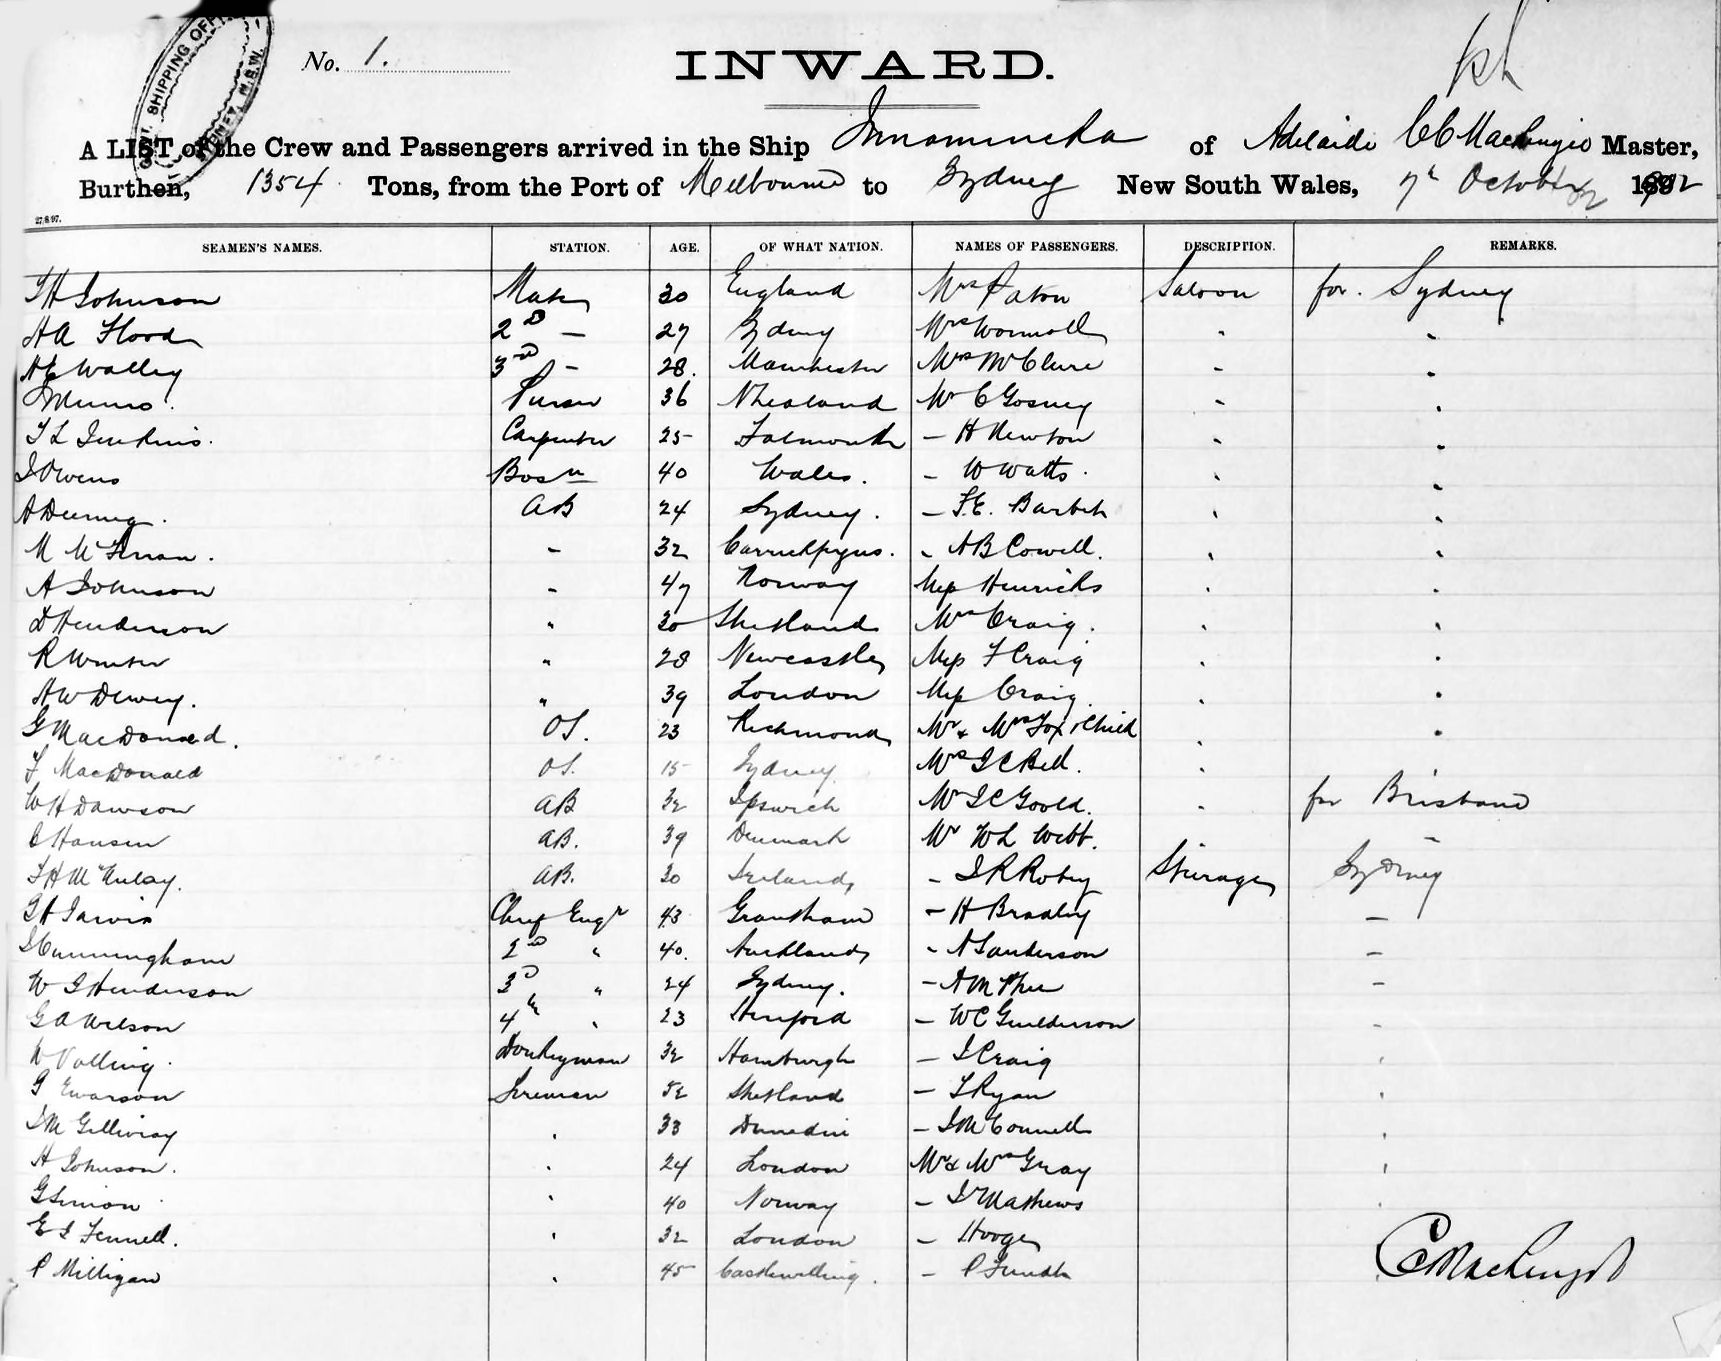 GOVT. SHIPPING OFFICE SYDNEY, N.S.W.
No. 1.
INWARD.
A LIST of the Crew and Passengers arrived in the Ship Innamincka of Adelaide CC Mackenzie Master,
Burthen, 1354 Tons, from the Port of Melbourne to Sydney New South Wales, 7th October 1902
27/8/97.
SEAMEN'S NAMES. STATION. AGE. OF WHAT NATION. NAMES OF PASSENGERS. DESCRIPTION. REMARKS.
Johnson Mate 30 England Mrs Paton Saloon for Sydney
HA Flood 2nd — 27 Sydney Mrs Wormall " "
Walley 3rd - 28. Manchester Mrs McClure " "
Munro. Purser 36 N Zealand Mr C Gosney " "
Jenkins. Carpenter 25 Falmouth — H Newton " "
J Owens Bosn 40 Wales. — W Watts. " "
A Deering. AB 24 Sydney. — F.E. Barbek " "
M McKernan. - 32 Carrickfergus. - AB Cowell. " "
A Johnson - 47 Norway Miss Hinricks " "
D Henderson " 30 Shetland Mrs Craig. " "
R Winter " 28 Newcastle Miss F Craig " "
AW Dewey. " 39 London Miss Craig " "
G MacDonald. OS. 23 Richmond Mr & Mrs Fox & Child " "
F MacDonald OS. 15 Sydney Mrs JC Bell. "
WH Dawson AB 32 Ipswich Mr JC Goold. " for Brisbane
C Hansen AB. 39 Denmark Mr WL Webb. —
McAulay. AB. 30 Ireland - J R Robey Steerage Sydney
GH Jarvis Chief Engr 43 Grantham - H Bradley —
J Cunningham 2nd " 40. Auckland - A Sanderson —
W J Henderson 3d " 24 Sydney. - A McPhee —
GA Wilson 4th " 23 Hereford — WC Guilderson -
W Valling. Donkeyman 32 Hamburgh — J Craig "
G Ewarson Fireman 52 Shetland — T Ryan "
J McGillivray " 33 Dunedin — J McConnell "
H Johnson. " 24 London Mr & Mrs Gray "
G Simon " 40 Norway — Mathews "
E J Fennell. " 32 London —
P Milligan " 45 Castlewelling. —
CC Mackenzie